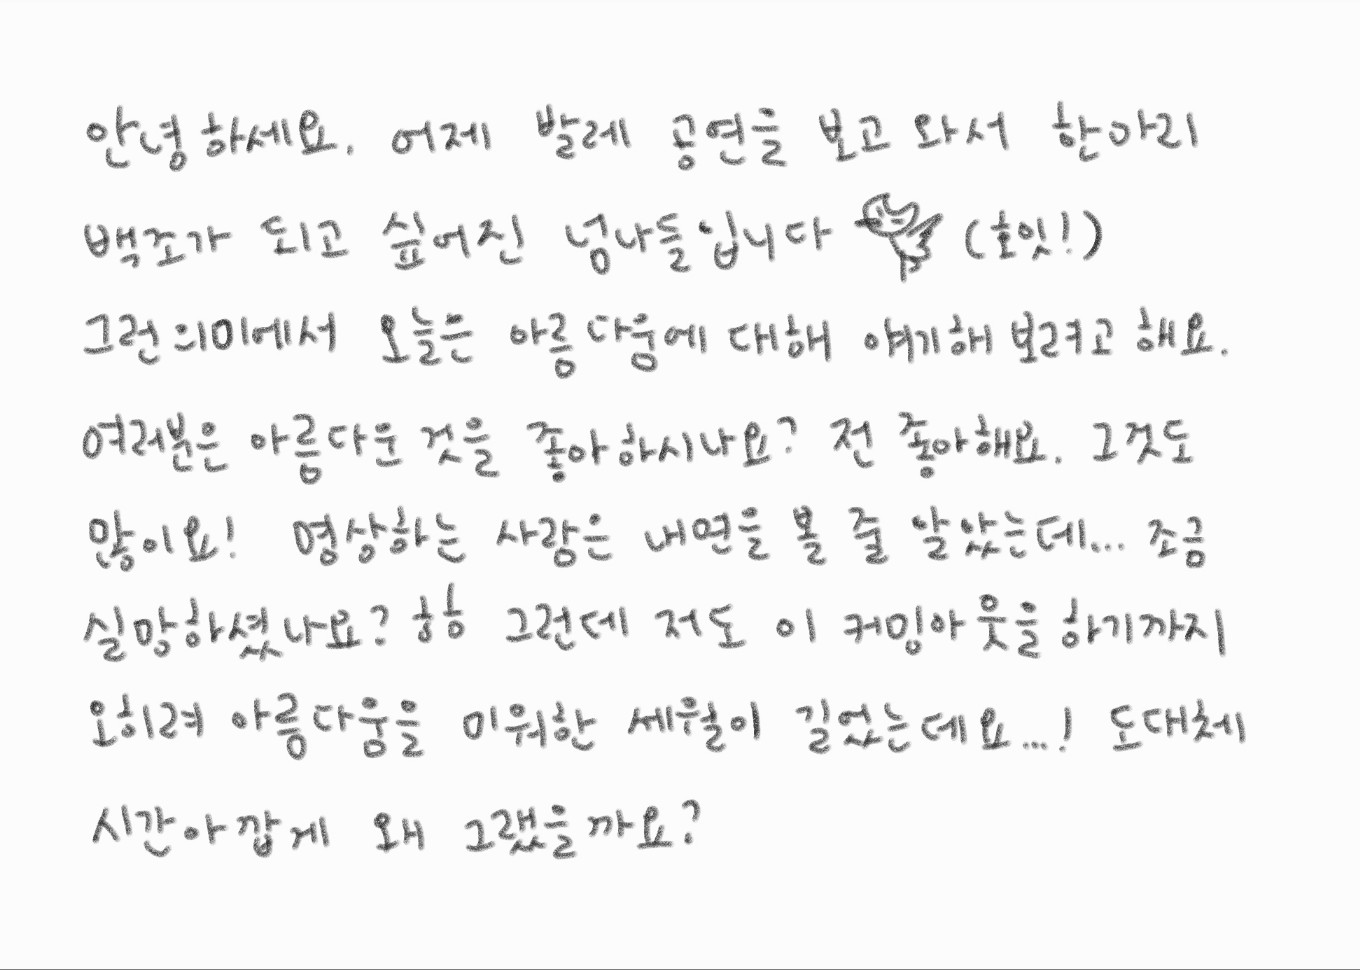 안녕하세요. 어제 발레 공연을 보고 와서 한마리
백조가 되고 싶어진 넘나들입니다 (호잇!)
그런 의미에서 오늘은 아름다움에 대해 얘기해 보려고 해요.
여러분은 아름다운 것을 좋아하시나요? 전 좋아해요. 그것도
많이요! 명상하는 사람은 내면을 볼 줄 알았는데... 조금
실망하셨나요? 핳 그런데 저도 이 커밍아웃을 하기까지
오히려 아름다움을 미워한 세월이 길었는데요...! 도대체
시간아깝게 왜 그랬을까요?